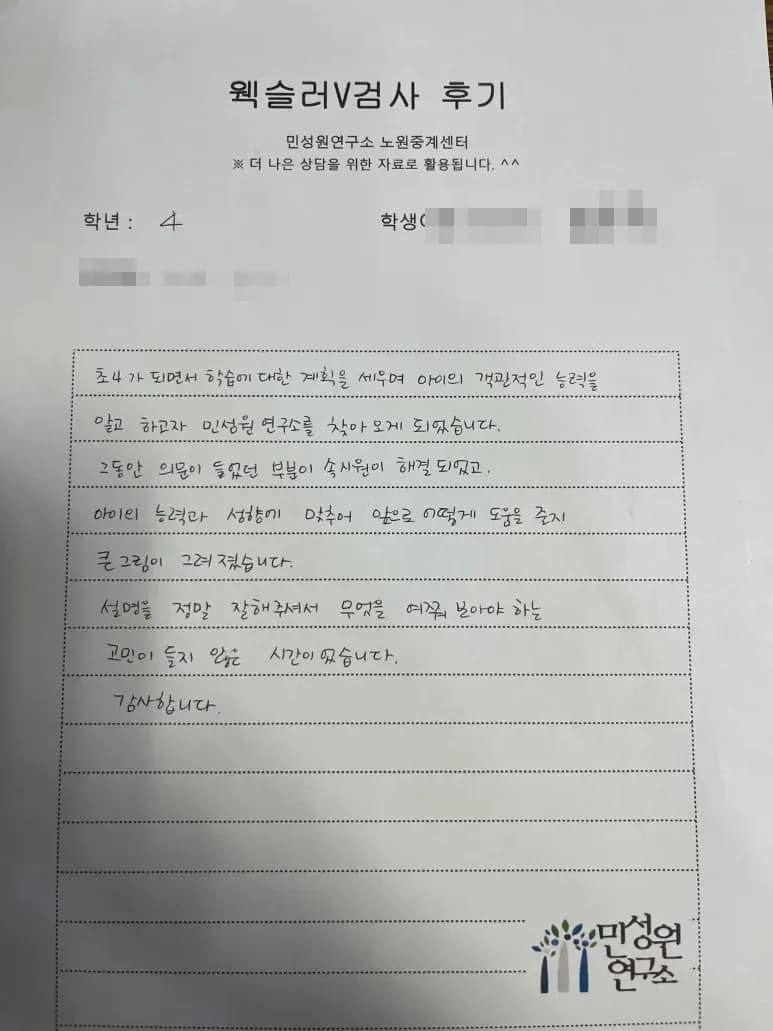 웩슬러V검사 후기
민성원연구소 노원중계센터
※ 더 나은 상담을 위한 자료로 활용됩니다. ^^
학년 : 4 학생
초4가 되면서 학습에 대한 계획을 세우며 아이의 객관적인 능력을
알고 하고자 민성원 연구소를 찾아오게 되었습니다.
그동안 의문이 들었던 부분이 속시원이 해결되었고,
아이의 능력과 성향에 맞추어 앞으로 어떻게 도움을 줄지
큰그림이 그려졌습니다.
설명을 정말 잘해주셔서 무엇을 여쭤 보아야 하는
고민이 들지 않은 시간이었습니다.
감사합니다.
민성원
연구소